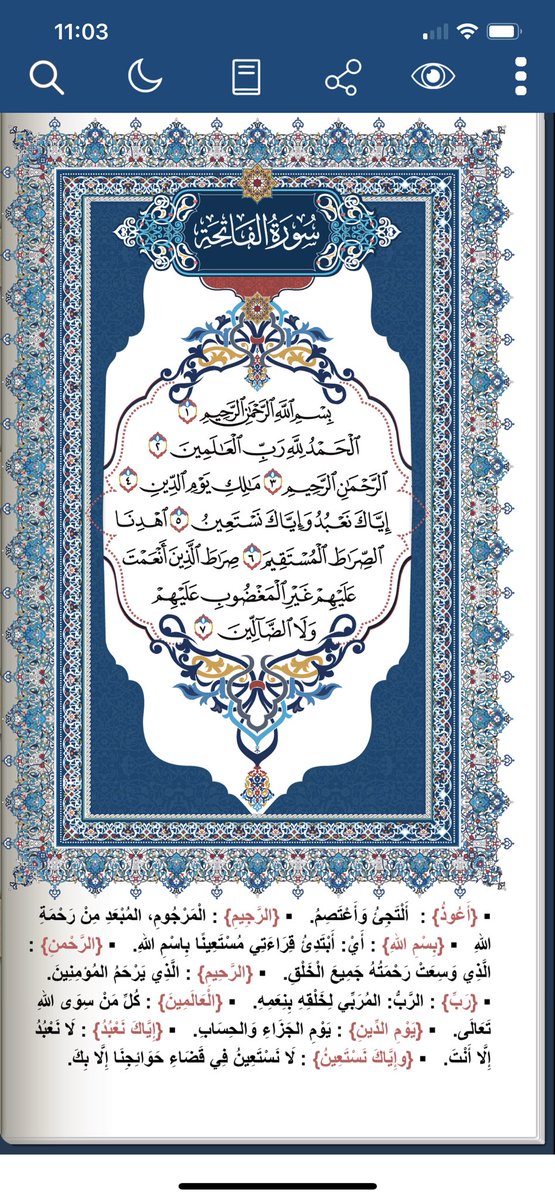 11:03
سُورَةُ الفَاتِحَةِ
بِسۡمِ ٱللَّهِ ٱلرَّحۡمَٰنِ ٱلرَّحِيمِ ١
ٱلۡحَمۡدُ لِلَّهِ رَبِّ ٱلۡعَٰلَمِينَ ٢
ٱلرَّحۡمَٰنِ ٱلرَّحِيمِ ٣ مَٰلِكِ يَوۡمِ ٱلدِّينِ ٤
إِيَّاكَ نَعۡبُدُ وَإِيَّاكَ نَسۡتَعِينُ ٥ ٱهۡدِنَا
ٱلصِّرَٰطَ ٱلۡمُسۡتَقِيمَ ٦ صِرَٰطَ ٱلَّذِينَ أَنۡعَمۡتَ
عَلَيۡهِمۡ غَيۡرِ ٱلۡمَغۡضُوبِ عَلَيۡهِمۡ
وَلَا ٱلضَّآلِّينَ ٧
▪ {أَعُوذُ} : أَلْتَجِئُ وَأَعْتَصِمُ. ▪ {الرَّجِيمِ} : الْمَرْجُومِ، المُبْعَدِ مِنْ رَحْمَةِ
اللهِ ▪ {بِسْمِ اللهِ} : أَيْ: أَبْتَدِئُ قِرَاءَتِي مُسْتَعِينًا بِاسْمِ اللهِ. ▪ {الرَّحْمنِ} :
الَّذِي وَسِعَتْ رَحْمَتُهُ جَمِيعَ الْخَلْقِ. ▪ {الرَّحِيمِ} : الَّذِي يَرْحَمُ المُؤمِنِينَ.
▪ {رَبِّ} : الرَّبُّ: المُرَبِّي لِخَلْقِهِ بِنِعَمِهِ. ▪ {الْعَالَمِينَ} : كُلِّ مَنْ سِوَى اللهِ
تَعَالَى. ▪ {يَوْمِ الدِّينِ} : يَوْمِ الجَزَاءِ وَالحِسَابِ. ▪ {إِيَّاكَ نَعْبُدُ} : لَا نَعْبُدُ
إِلَّا أَنْتَ. ▪ {وإِيَّاكَ نَسْتَعِينُ} : لَا نَسْتَعِينُ فِي قَضَاءِ حَوَائِجِنَا إِلَّا بِكَ.